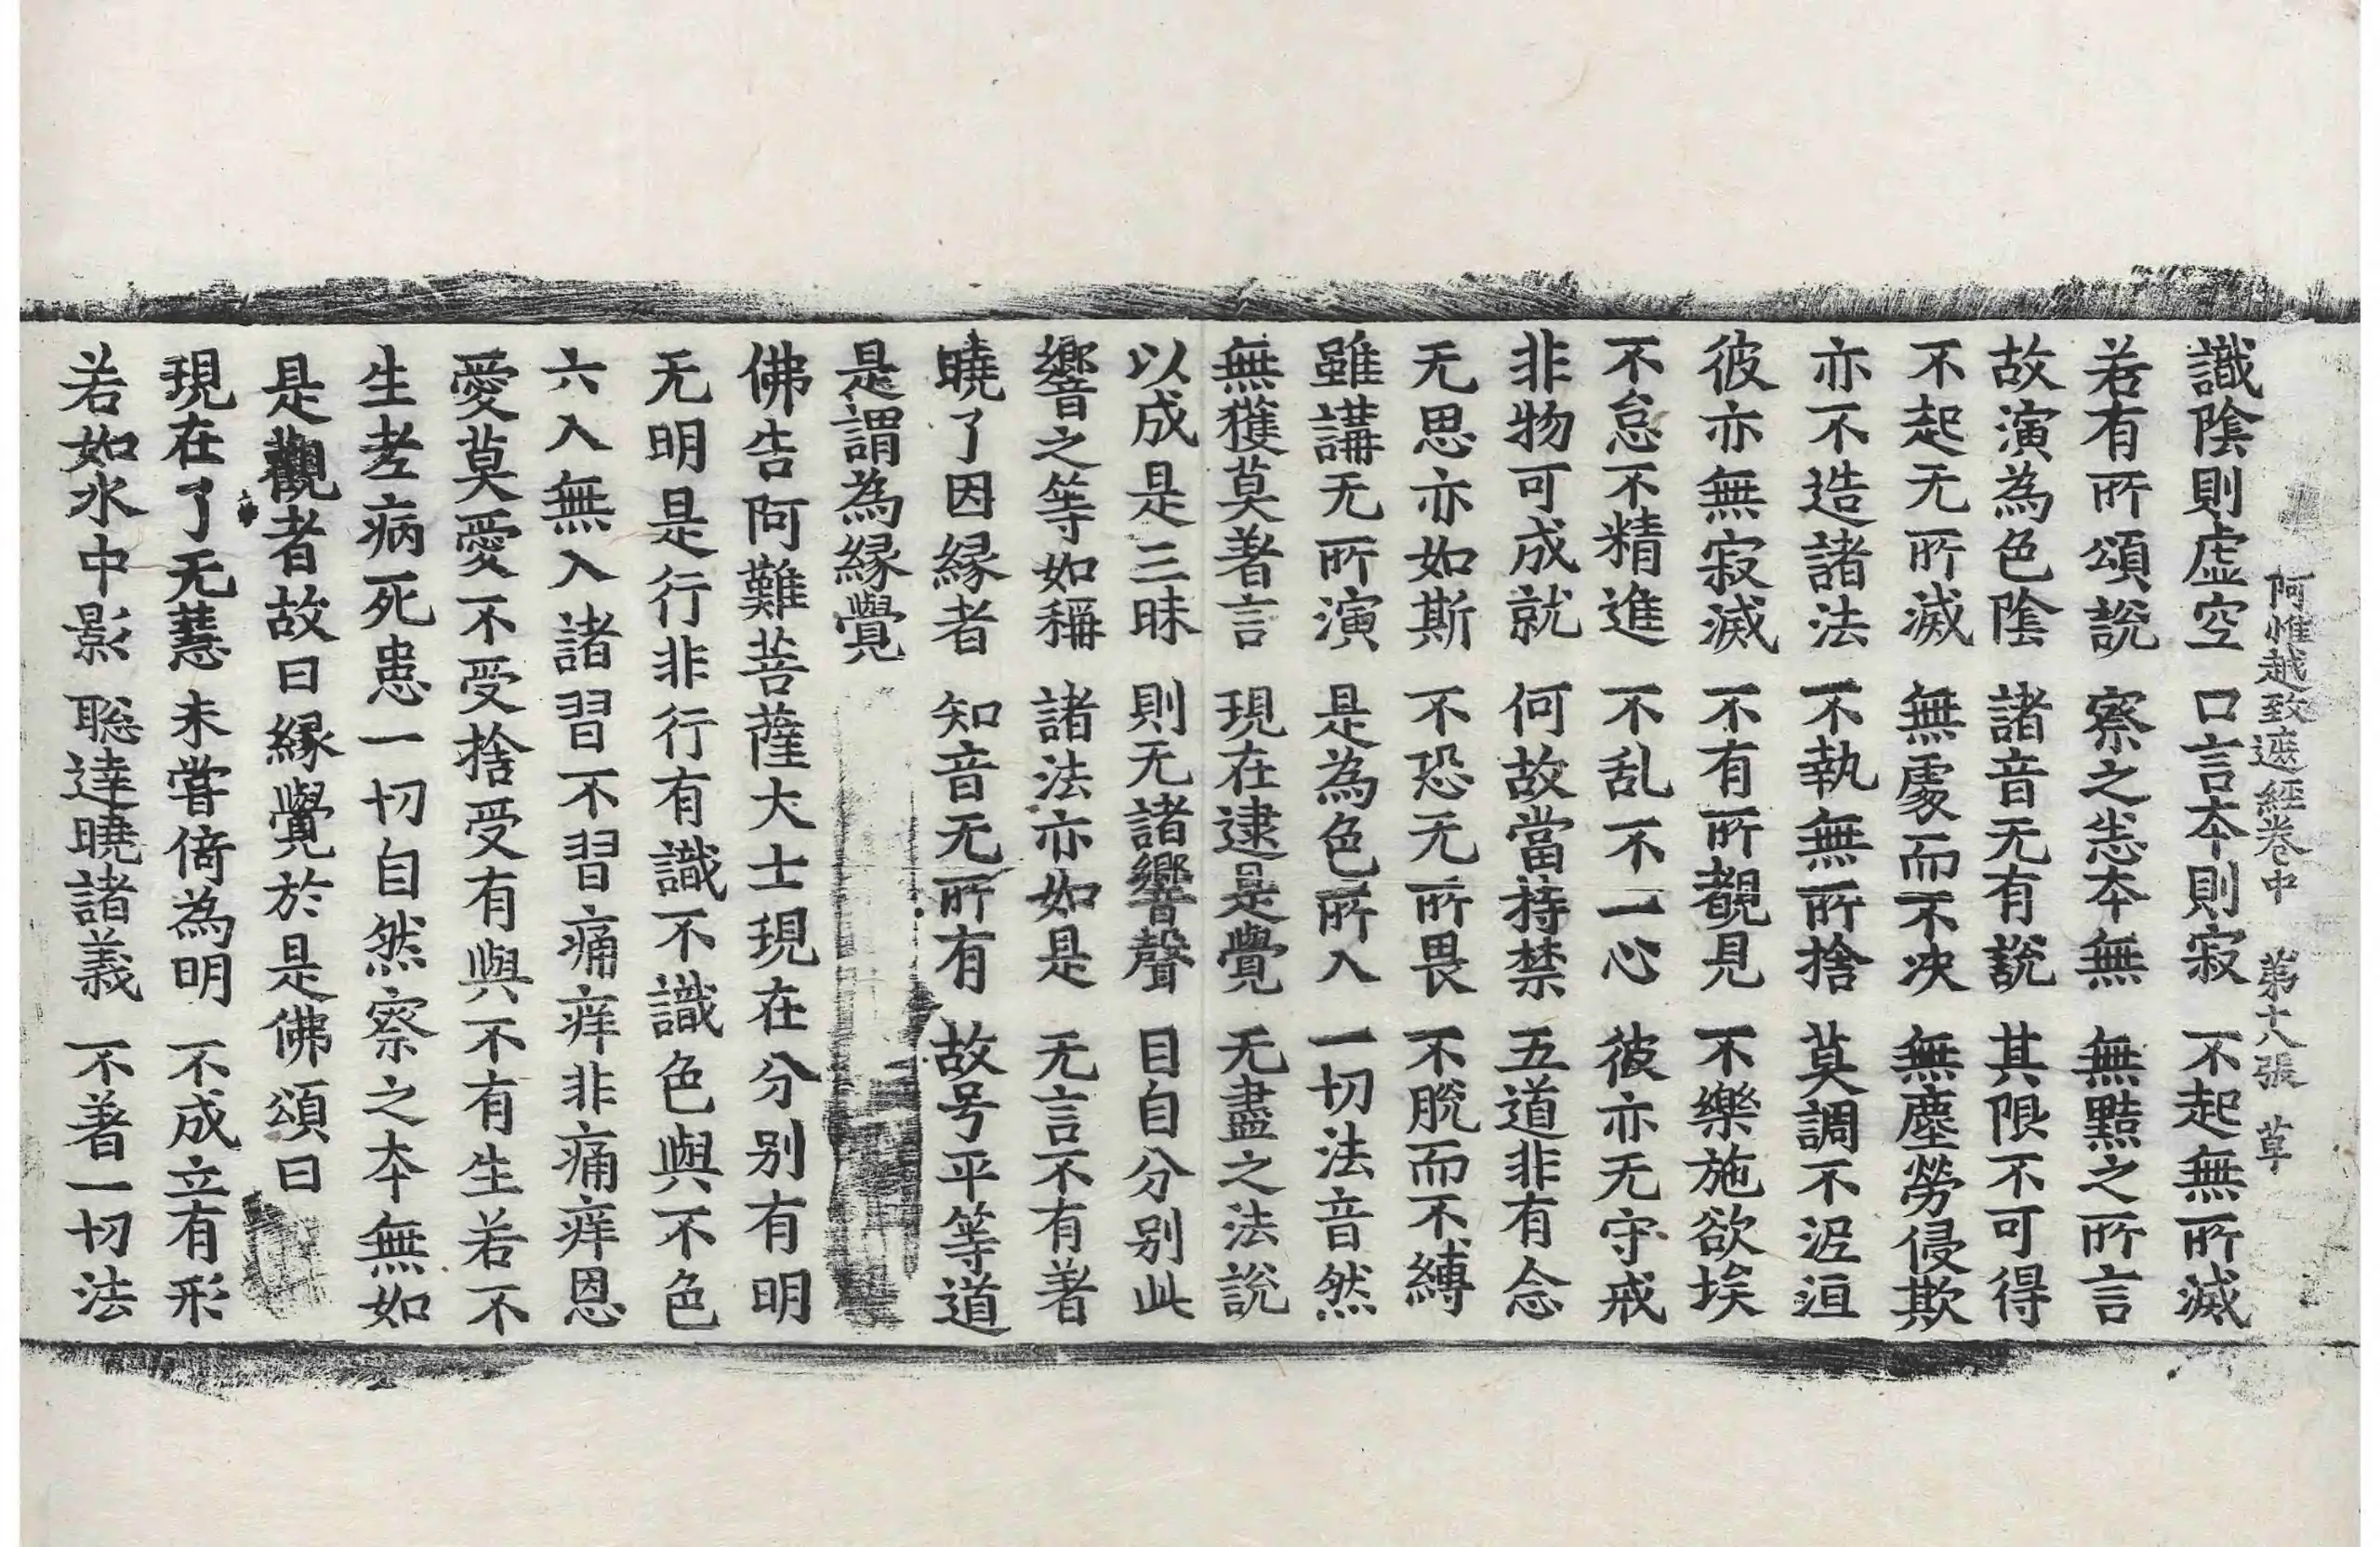 阿惟越致遮經卷中 第十八張 草
識陰則虛空 口言本則寂 不起無所滅
若有所頌說 察之恚本無 無黠之所言
故演為色陰 諸音无有說 其限不可得
不起无所滅 無處而不决 無塵勞侵欺
亦不造諸法 不執無所捨 莫調不泥洹
彼亦無寂滅 不有所覩見 不樂施欲埃
不怠不精進 不乱不一心 彼亦无守戒
非物可成就 何故當持禁 五道非有念
无思亦如斯 不恐无所畏 不脫而不縛
雖講无所演 是為色所入 一切法音然
無獲莫著言 現在逮是覺 无盡之法說
以成是三昧 則无諸響聲 目自分別此
響之等如稱 諸法亦如是 无言不有著
曉了因緣者 知音无所有 故号平等道
是謂為緣覺
佛告阿難菩薩大士現在分別有明
无明是行非行有識不識色與不色
六入無入諸習不習痛痒非痛痒恩
愛莫愛不受捨受有與不有生若不
生老病死患一切自然察之本無如
是觀者故曰緣覺於是佛頌曰
現在了无慧 未甞倚為明 不成立有形
若如水中影 聡達曉諸義 不著一切法